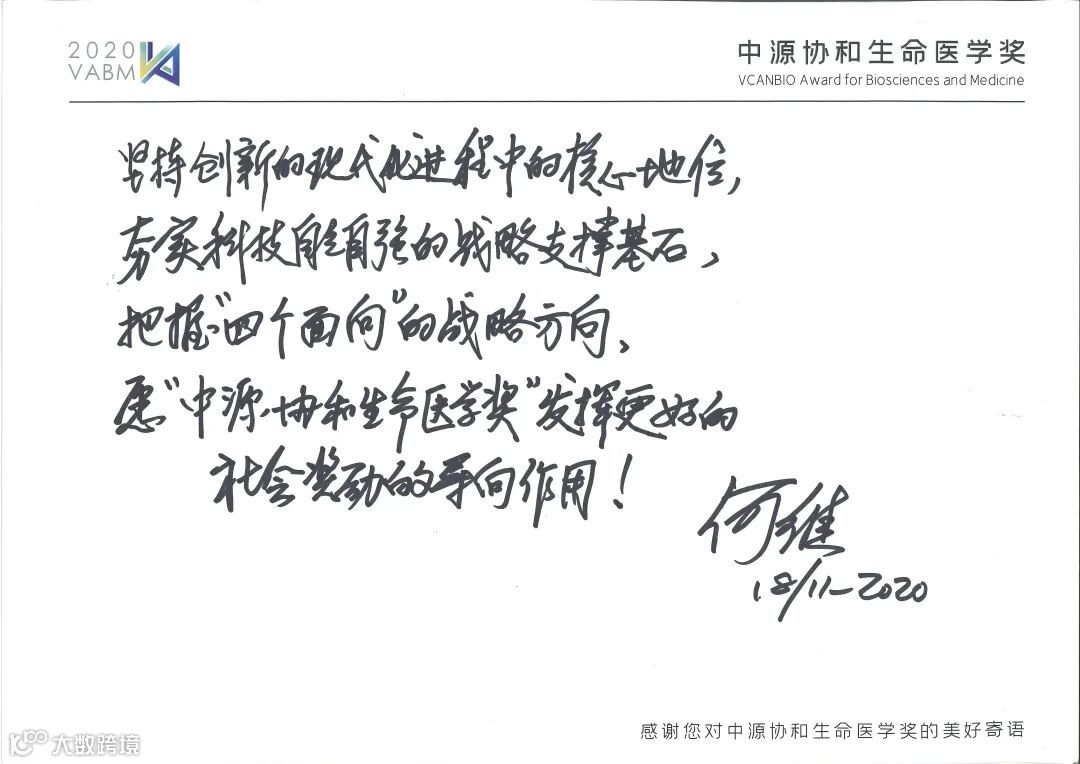 2020
VABM
中源协和生命医学奖
VCANBIO Award for Biosciences and Medicine
坚持创新的现代化进程中的核心地位,
夯实科技自立自强的战略支撑基石,
把握“四个面向”的战略方向,
愿“中源协和生命医学奖”发挥更好的
社会奖励的导向作用!
何维
18/11-2020
感谢您对中源协和生命医学奖的美好寄语
大数跨境